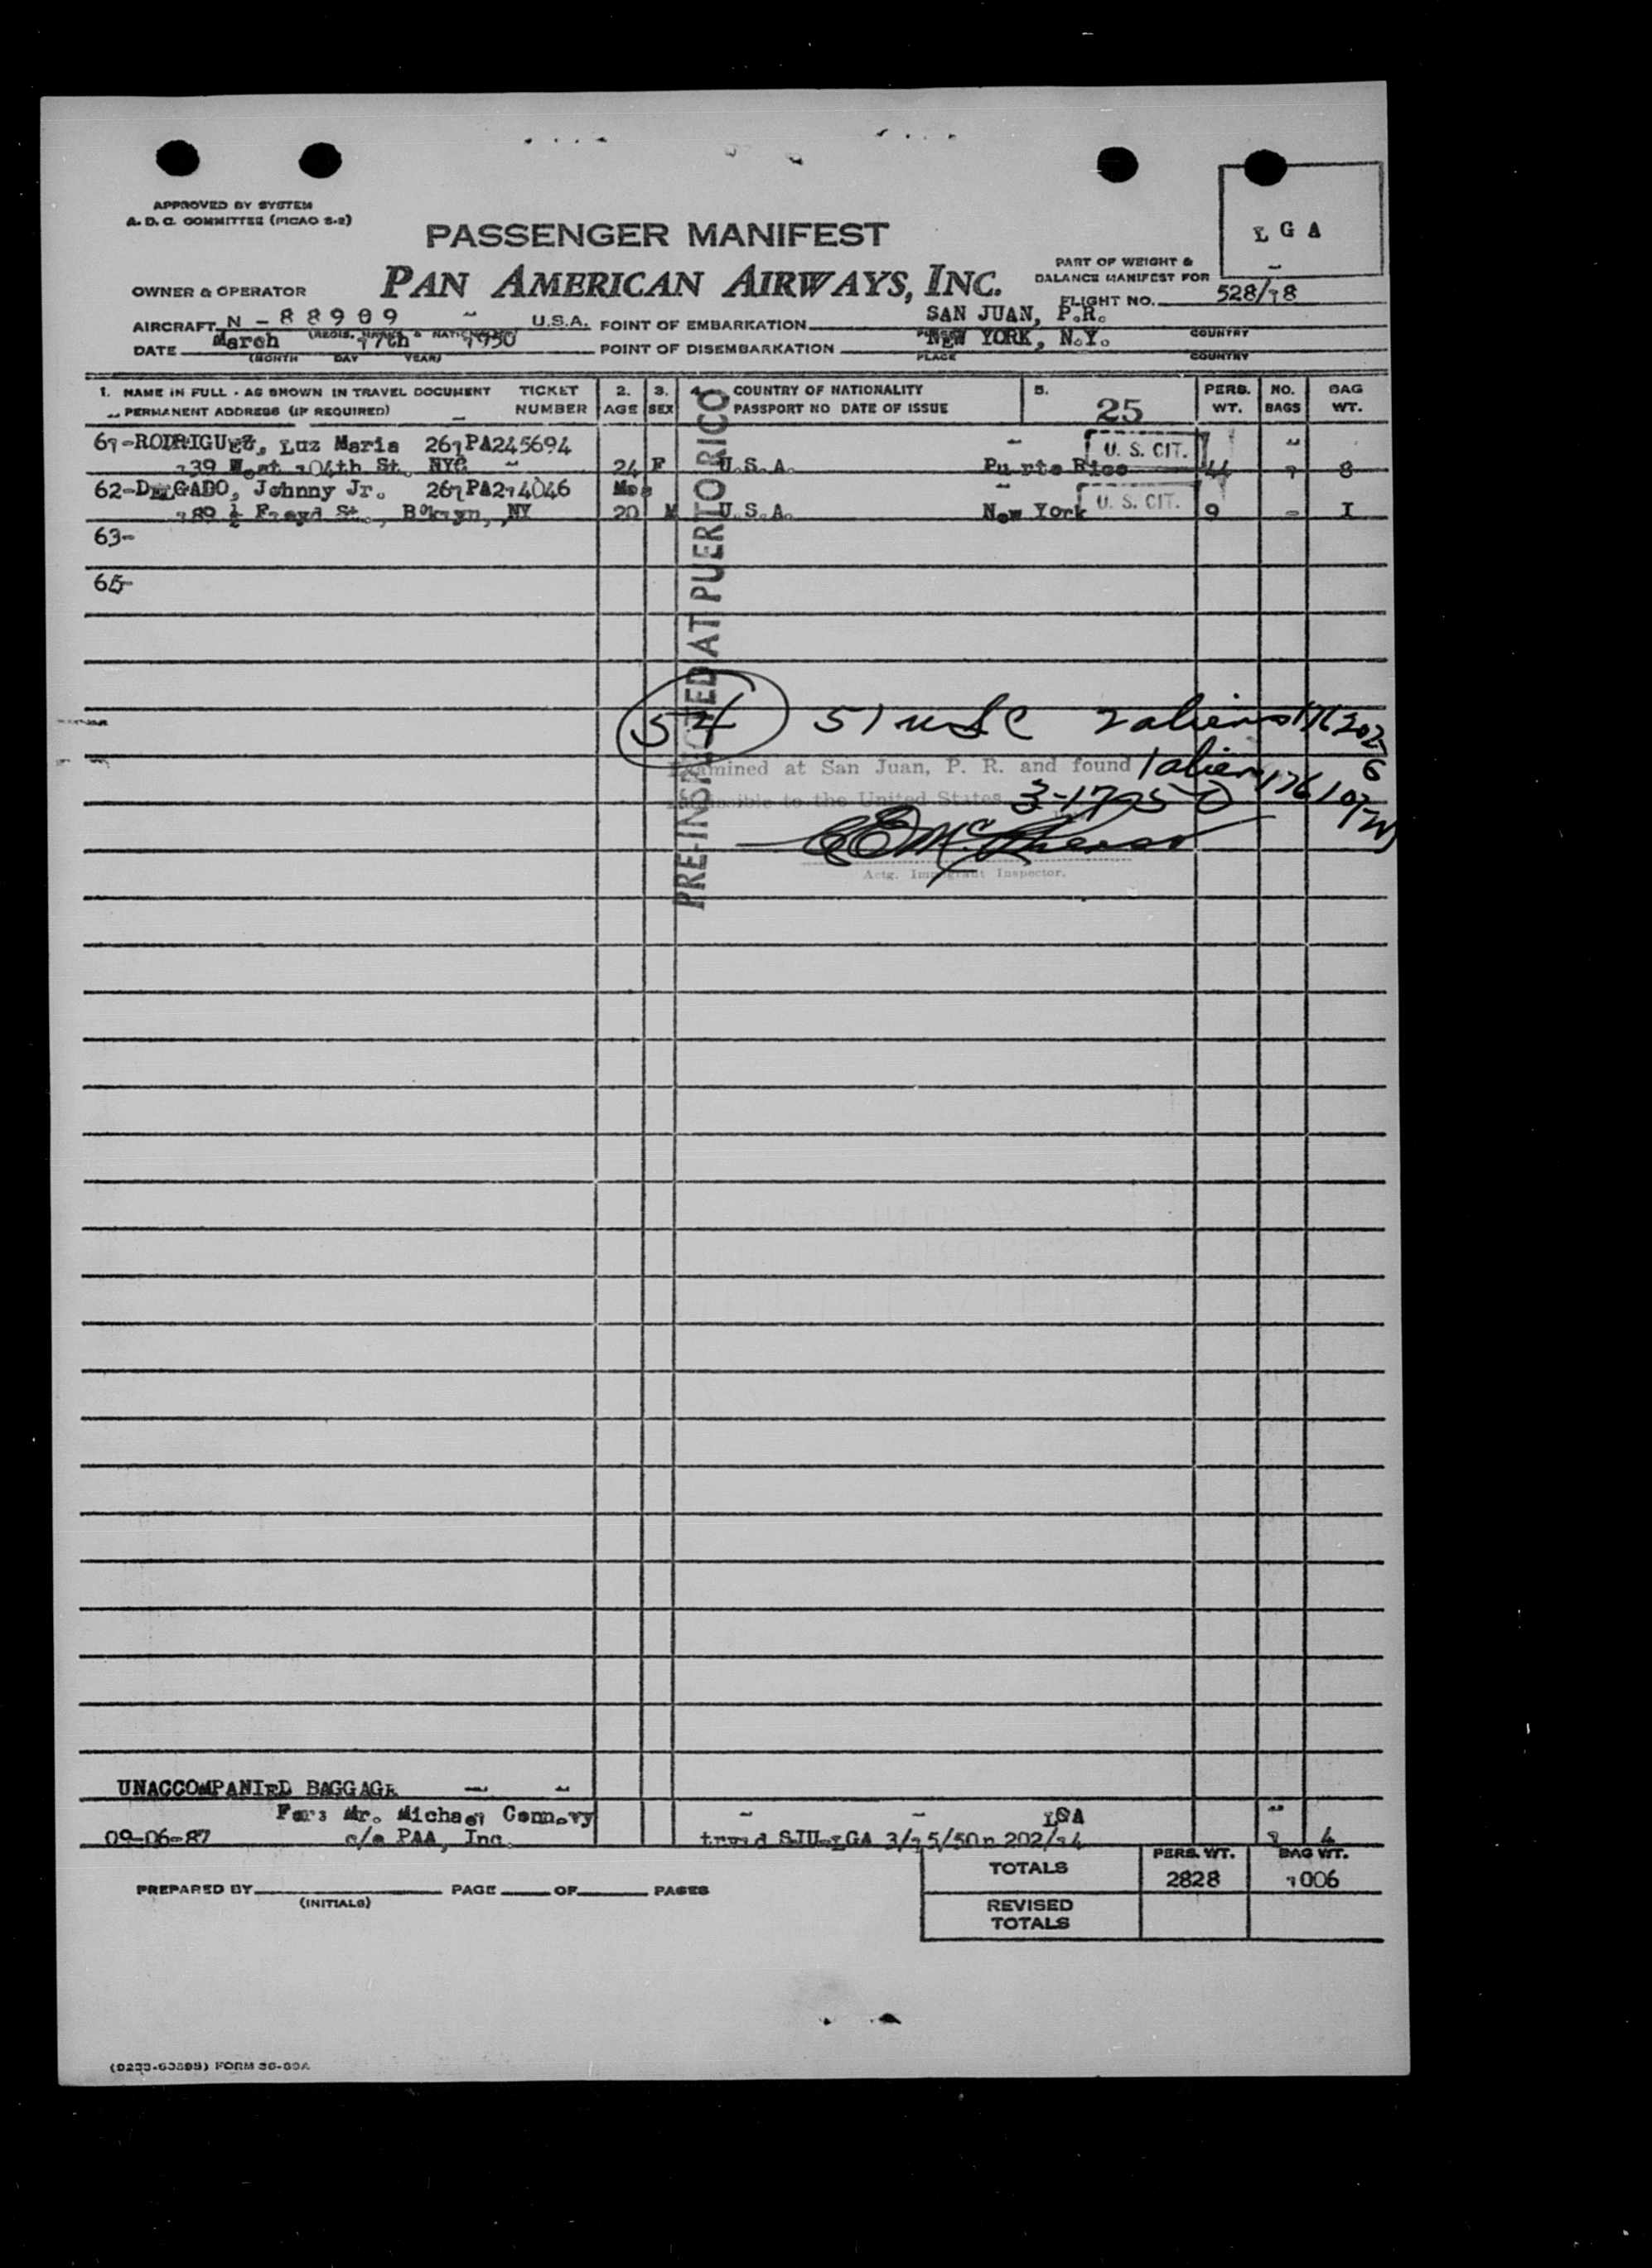 APPROVED BY SYSTEM
A. D. C. COMMITTEE (PICAO S-2)
PASSENGER MANIFEST
L G A
PART OF WEIGHT &
BALANCE MANIFEST FOR
OWNER & OPERATOR PAN AMERICAN AIRWAYS, INC.
FLIGHT NO. 528/18
AIRCRAFT N - 88909 U.S.A. POINT OF EMBARKATION SAN JUAN, P.R.
COUNTRY
DATE March 17th 1950 POINT OF DISEMBARKATION NEW YORK, N.Y.
(MONTH DAY YEAR) PLACE COUNTRY
1. NAME IN FULL - AS SHOWN IN TRAVEL DOCUMENT TICKET 2. 3. 4. COUNTRY OF NATIONALITY 5. PERS. NO. BAG
PERMANENT ADDRESS (IF REQUIRED) NUMBER AGE SEX PASSPORT NO DATE OF ISSUE 25 WT. BAGS WT.
61-RODRIGUEZ, Luz Maria 261PA245694 U. S. CIT.
139 West 104th St. NYC 24 F U.S.A. Puerto Rico 1 8
62-DELGADO, Johnny Jr. 261PA214046 Mos
189 ½ Floyd St., Boklyn, NY 20 M U.S.A. New York U. S. CIT. 9 - I
63-
PRE-INSPECTED AT PUERTO RICO
54 51 USC 2 aliens
Examined at San Juan, P. R. and found 1 alien
admissible to the United States 3-17-50
Actg. Immigrant Inspector.
UNACCOMPANIED BAGGAGE
For: Mr. Michael
09-06-87 c/o PAA, Inc. SJU-LGA 3/15/50 n 202/14 4
TOTALS PERS. WT. BAG WT.
2828 1006
PREPARED BY PAGE OF PAGES
(INITIALS)
REVISED
TOTALS